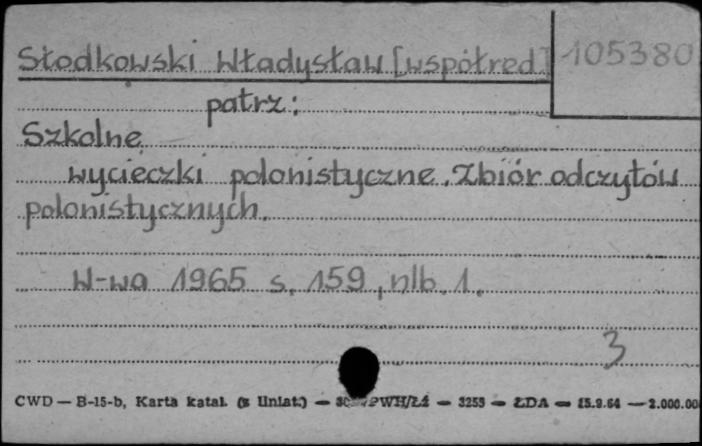 Słodkowski Władysław [współred] 105380
patrz:
Szkolne
wycieczki polonistyczne. Zbiór odczytów
polonistycznych.
W-wa 1965 s. 159, nlb. 1.
3
CWD — B-15-b, Karta katal. (z liniat.) — PWH/Łź — 3253 — ŁDA — 15.9.64 — 2.000.00